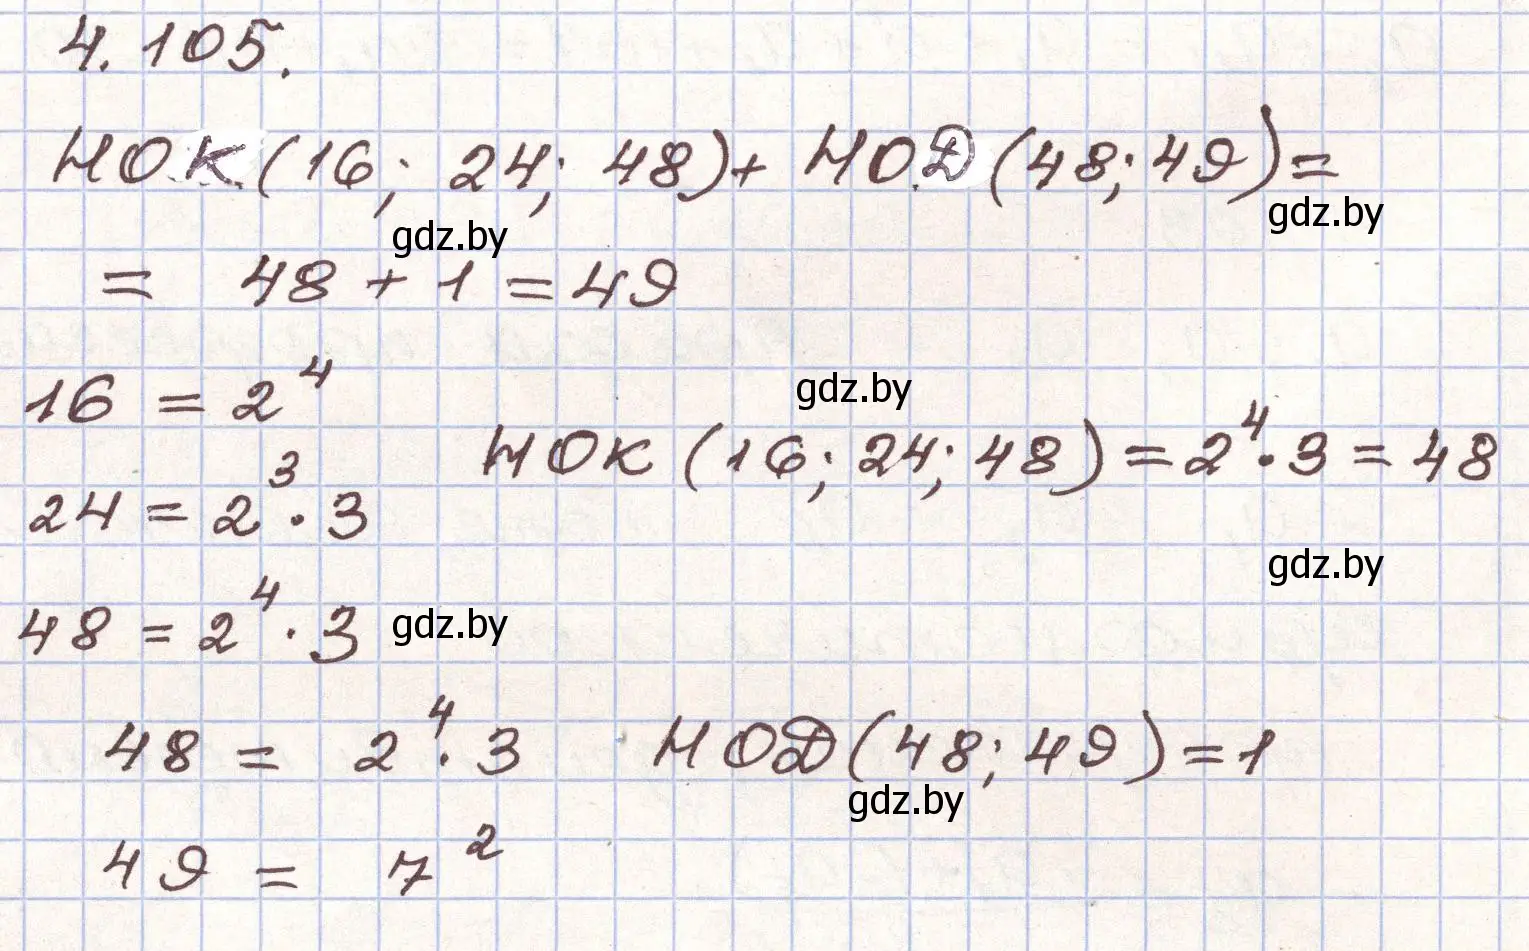 4.105.
НОК(16; 24; 48)+ НОД(48;49)=
gdz.by
gdz.by
= 48 + 1 = 49
16 = 2⁴
gdz.by
НОК (16; 24; 48) = 2⁴·3 = 48
24 = 2³·3
gdz.by
48 = 2⁴·3
gdz.by
48 = 2⁴·3 НОД(48; 49)=1
gdz.by
49 = 7²